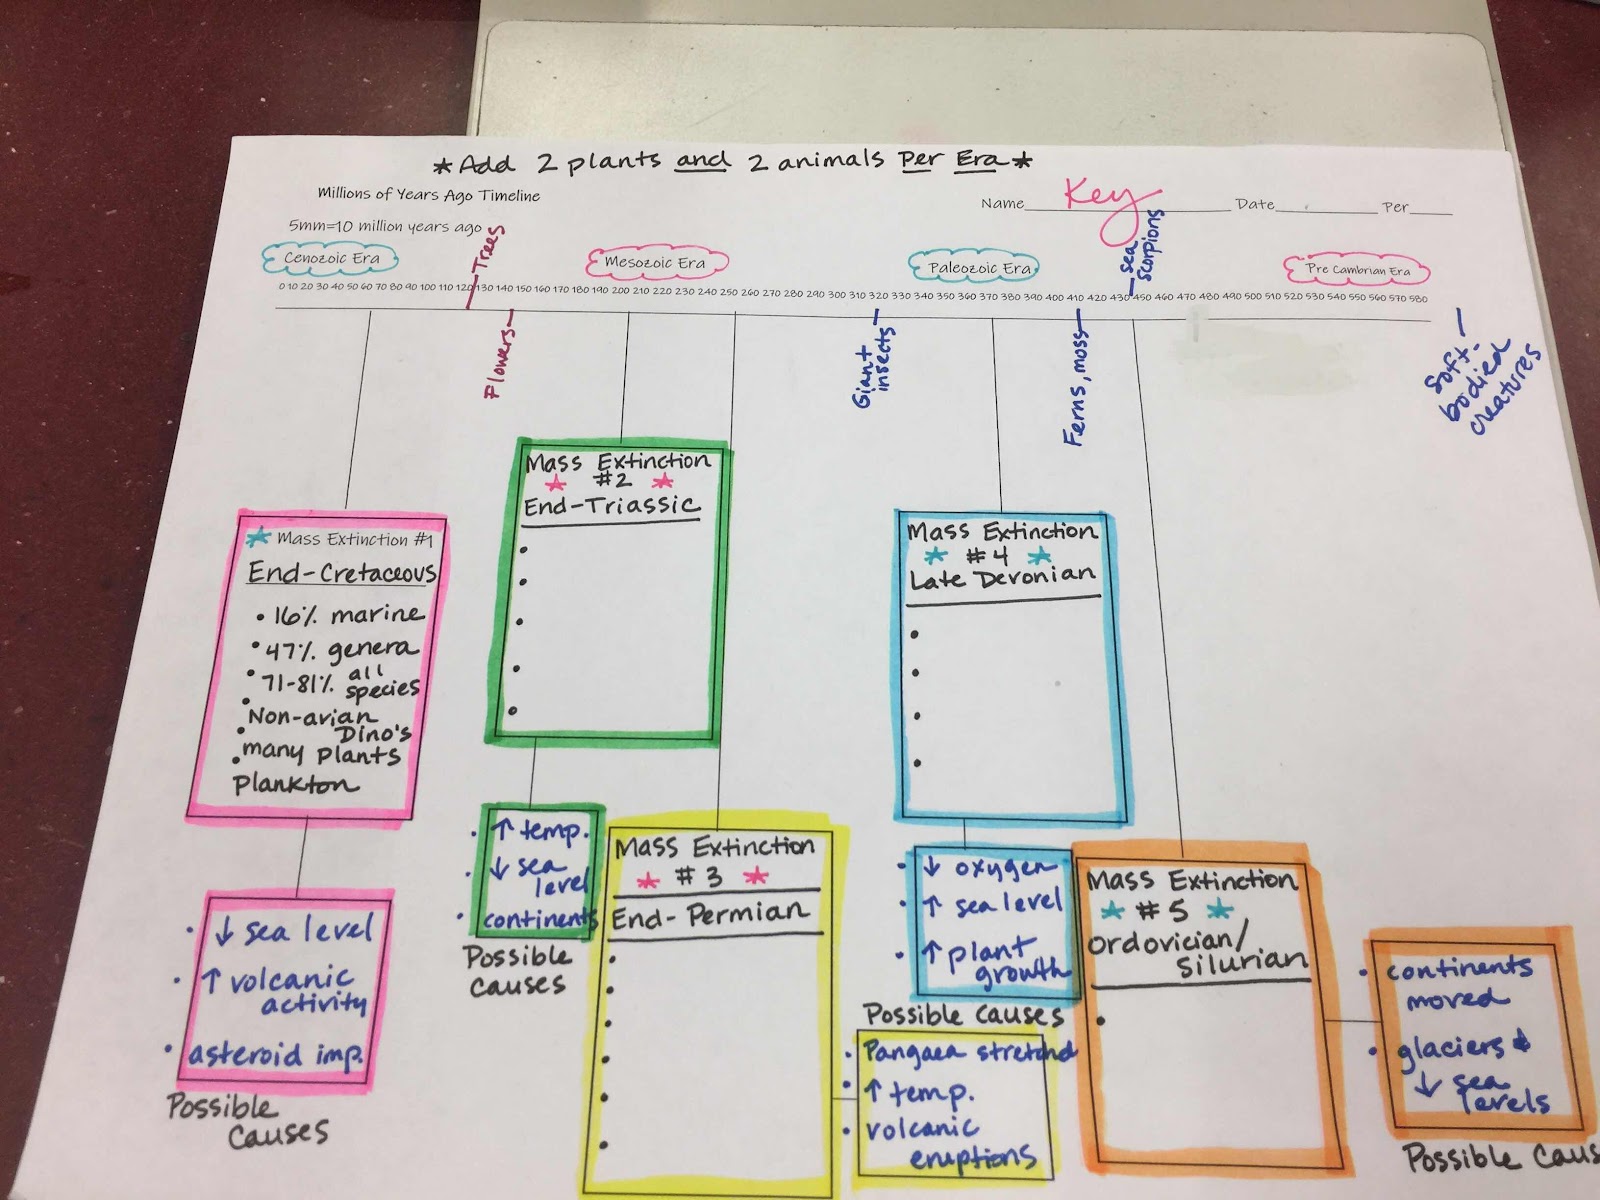 *Add 2 plants and 2 animals Per Era*
Millions of Years Ago Timeline
Name Key Date Per
5mm=10 million years ago
Cenozoic Era
Mesozoic Era
Paleozoic Era
Pre Cambrian Era
Trees
Sea
Scorpions
0 10 20 30 40 50 60 70 80 90 100 110 120 130 140 150 160 170 180 190 200 210 220 230 240 250 260 270 280 290 300 310 320 330 340 350 360 370 380 390 400 410 420 430 450 460 470 480 490 500 510 520 530 540 550 560 570 580
Flowers
Giant
insects
Ferns, moss
Soft-
bodied
creatures
Mass Extinction #1
End-Cretaceous
• 16% marine
• 47% genera
• 71-81% all
species
• Non-avian
Dino's
• many plants
• Plankton
↓ sea level
↑ volcanic
activity
asteroid imp.
Possible
causes
Mass Extinction
#2
End-Triassic
↑ temp.
↓ sea
level
continents
Possible
causes
Mass Extinction
#3
End-Permian
Pangaea stretchd
↑ temp.
volcanic
eruptions
Mass Extinction
#4
Late Devonian
↓ oxygen
↑ sea level
↑ plant
growth
Possible causes
Mass Extinction
#5
Ordovician/
Silurian
continents
moved
glaciers &
↓ sea
levels
Possible Caus